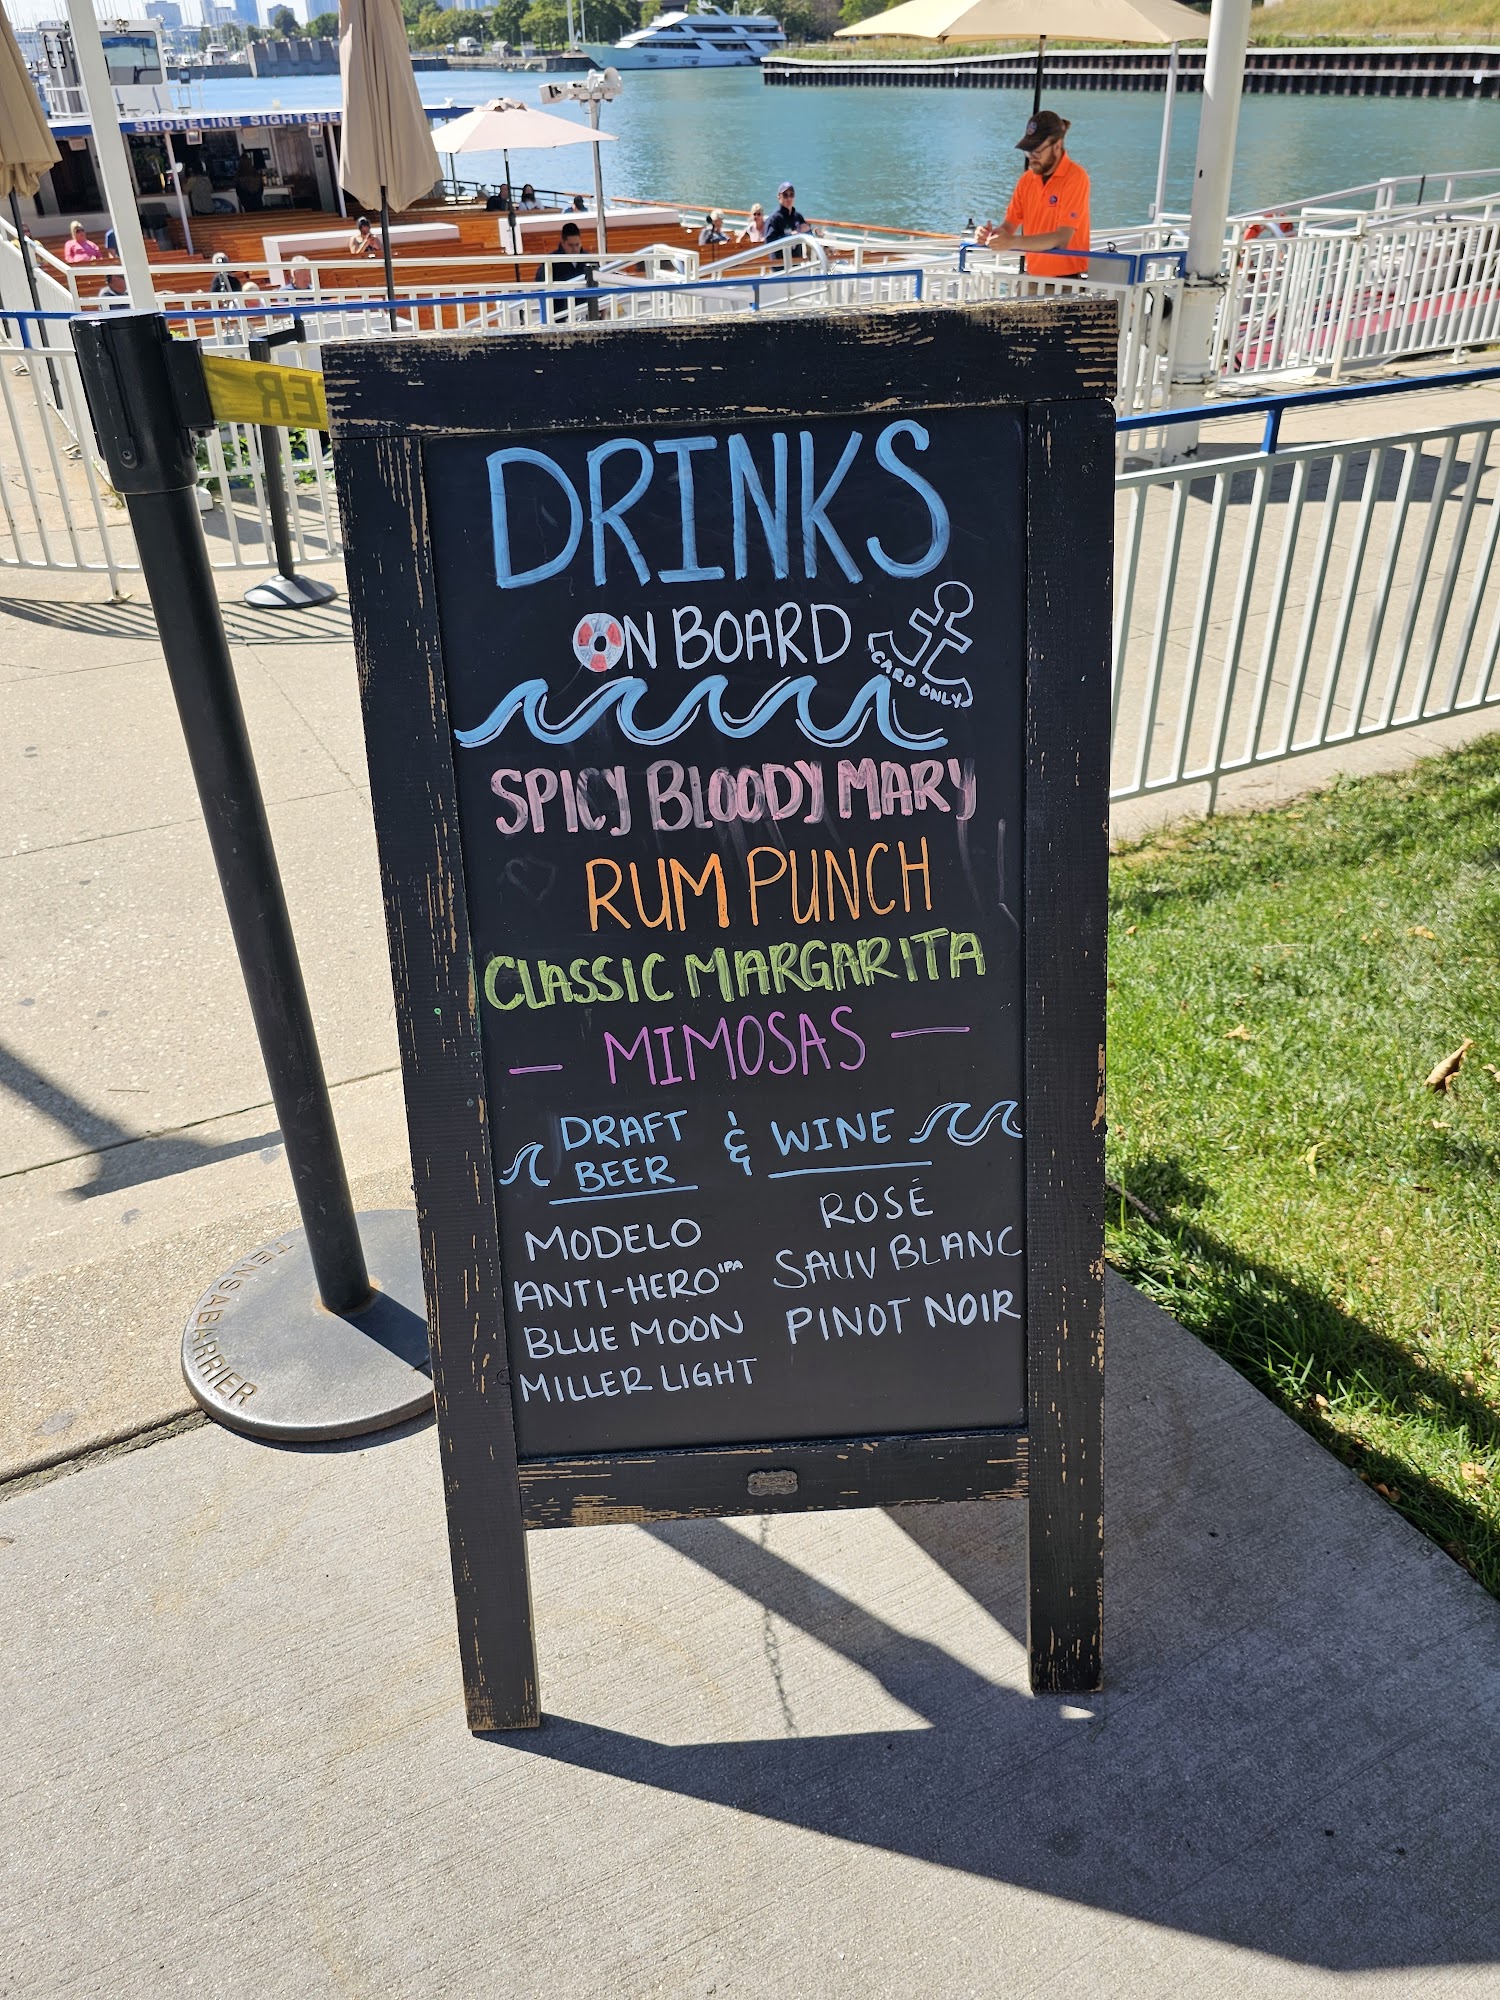 SHORELINE SIGHTSEE
ER
DRINKS
ON BOARD
CARD ONLY
SPICY BLOODY MARY
RUM PUNCH
CLASSIC MARGARITA
— MIMOSAS —
DRAFT BEER & WINE
MODELO
ANTI-HERO IPA
BLUE MOON
MILLER LIGHT
ROSÉ
SAUV BLANC
PINOT NOIR
TENSABARRIER